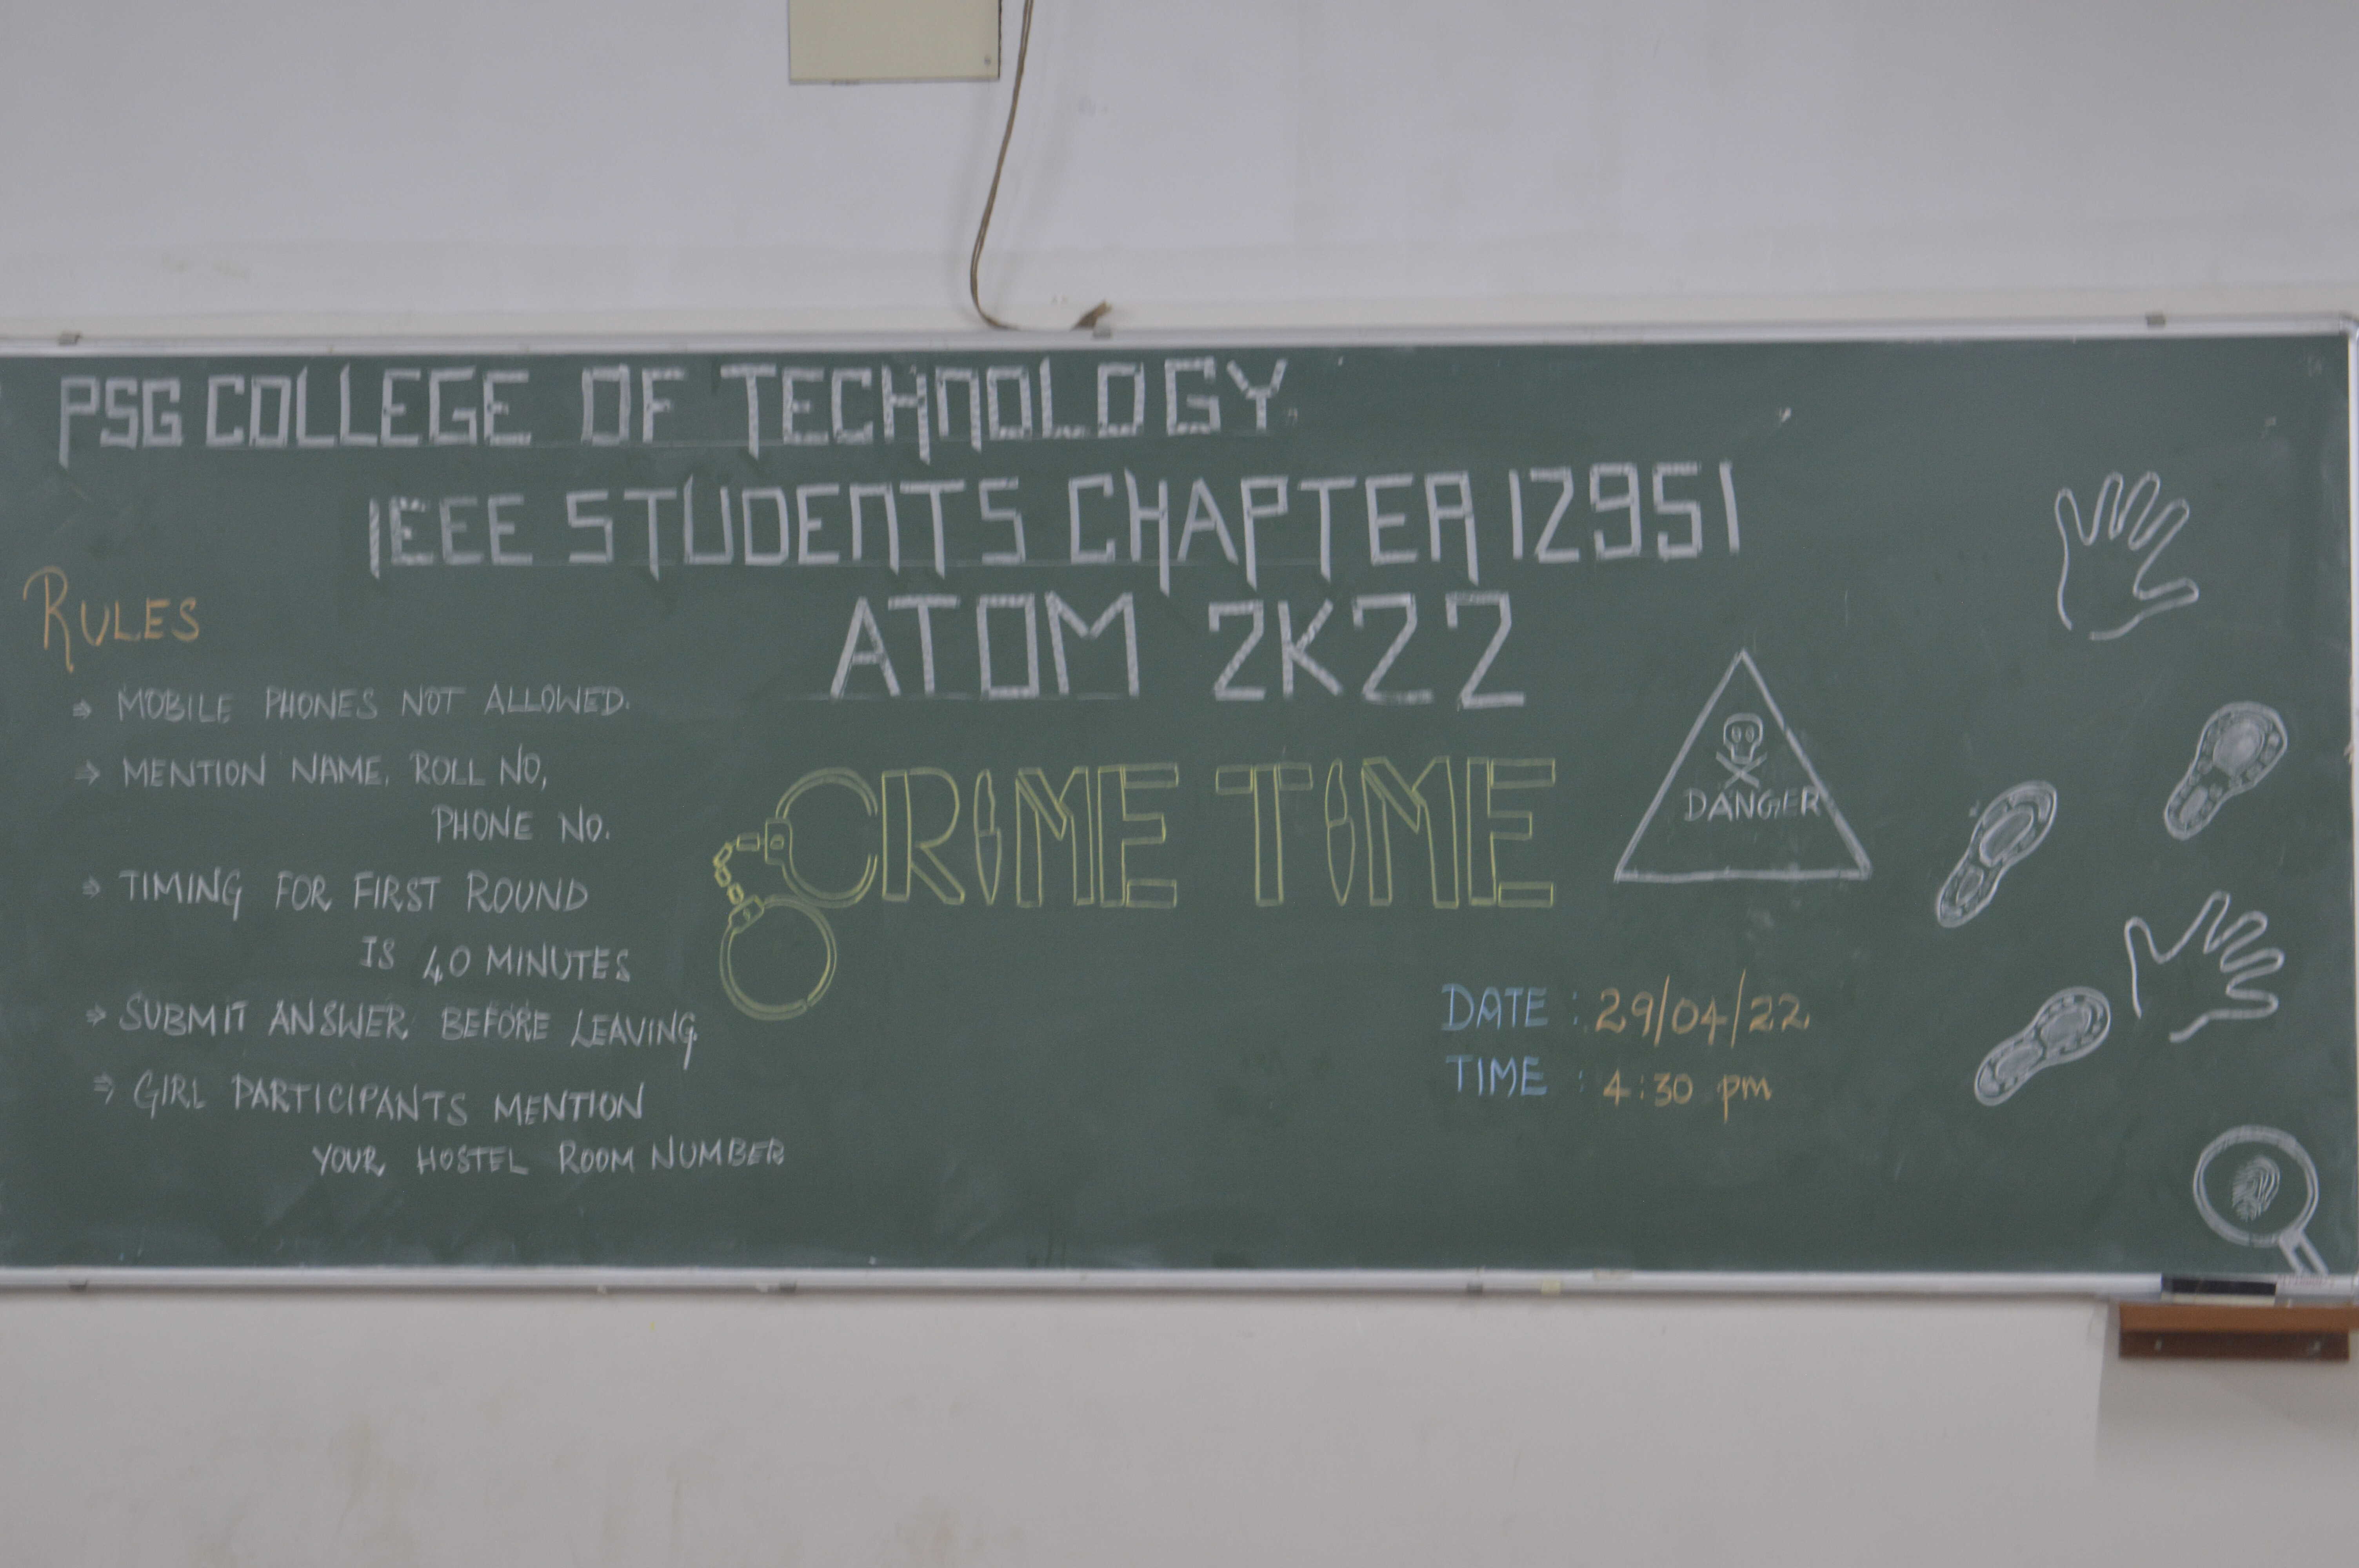 PSG COLLEGE OF TECHNOLOGY
IEEE STUDENTS CHAPTER 12951
ATOM 2K22
CRIME TIME
RULES
⇒ MOBILE PHONES NOT ALLOWED.
⇒ MENTION NAME, ROLL NO,
PHONE NO.
⇒ TIMING FOR FIRST ROUND
IS 40 MINUTES
⇒ SUBMIT ANSWER BEFORE LEAVING
⇒ GIRL PARTICIPANTS MENTION
YOUR HOSTEL ROOM NUMBER
DANGER
DATE : 29/04/22
TIME : 4:30 pm